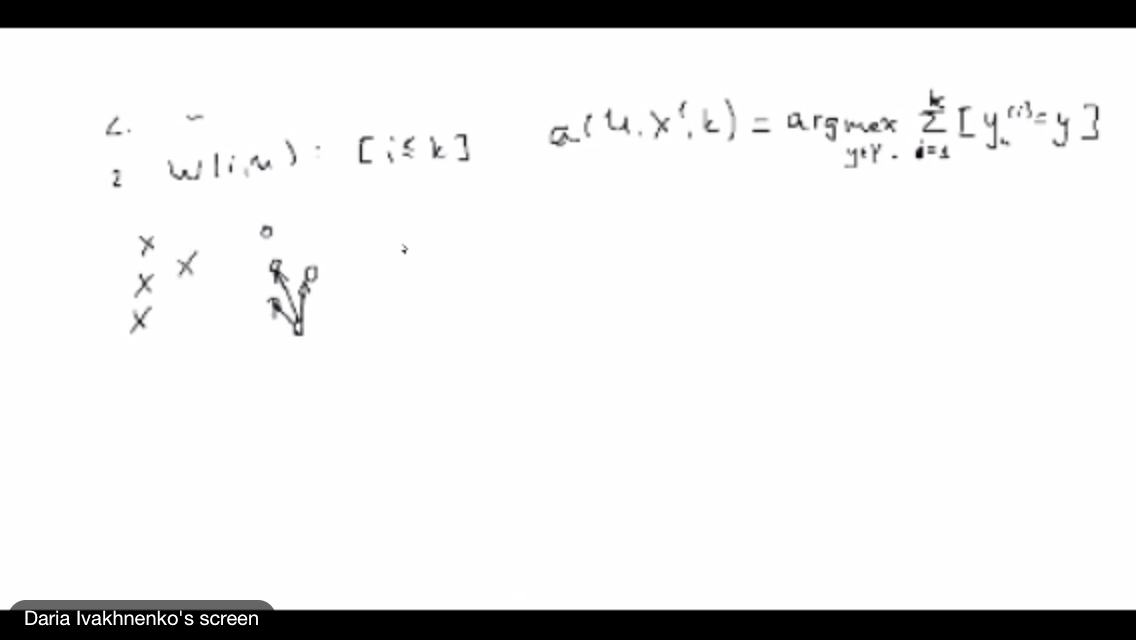 2.
2 w(i,u) : [i ≤ k] a(u, x^l, k) = arg max_{y∈Y} Σ_{i=1}^{k} [y_u^{(i)} = y]
x x o
x
x
Daria Ivakhnenko's screen